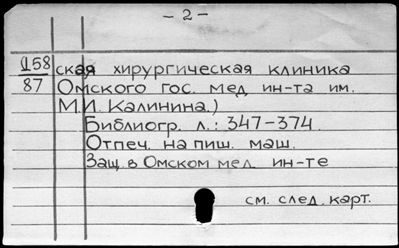 - 2 -
Д58 ская хирургическая клиника
87 Омского гос. мед. ин-та им.
М.И. Калинина.)
Библиогр. л.: 347-374.
Отпеч. на пиш. маш.
Защ. в Омском мед. ин-те
см. след. карт.